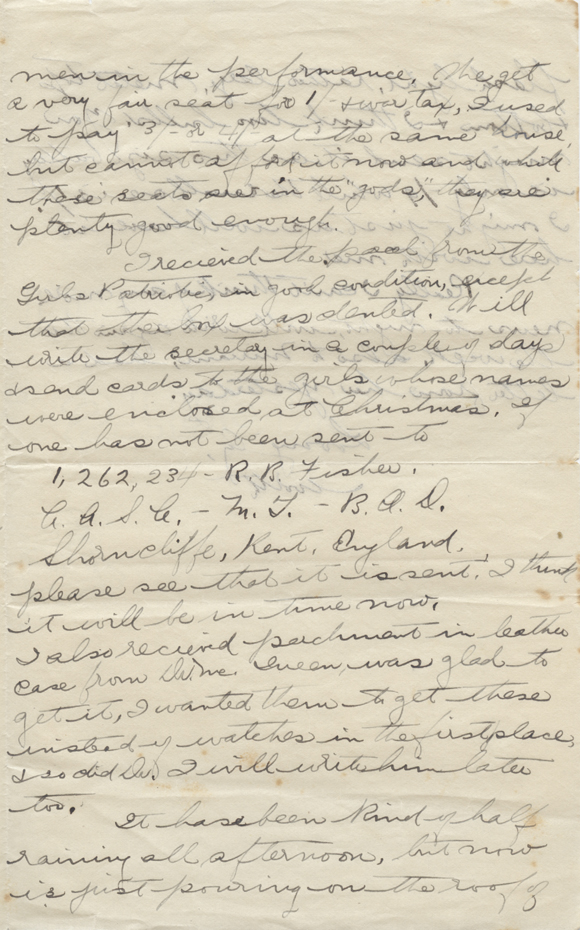 men in the performance. We get
a very fair seat for 1/- & war tax, I used
to pay 3/- or 4/- at the same house,
but cannot afford it now and while
these seats are in the "gods," they are
plenty good enough.
I recieved the parcel from the
Girls Patriotic, in good condition, except
that the box was dented. Will
write the secretary in a couple of days
& send cards to the girls whose names
were enclosed at Christmas. If
one has not been sent to
1,262,234 - R. B. Fisher.
C. A. S. C. - M. T. - B. A. D.
Shorncliffe, Kent, England,
please see that it is sent. I think
it will be in time now.
I also recieved parchment in leather
case from Dr. Mc. Queen, was glad to
get it, I wanted them to get these
instead of watches in the first place,
& so did Dr. I will write him later
too.
It has been kind of half
raining all afternoon, but now
is just pouring on the roof of